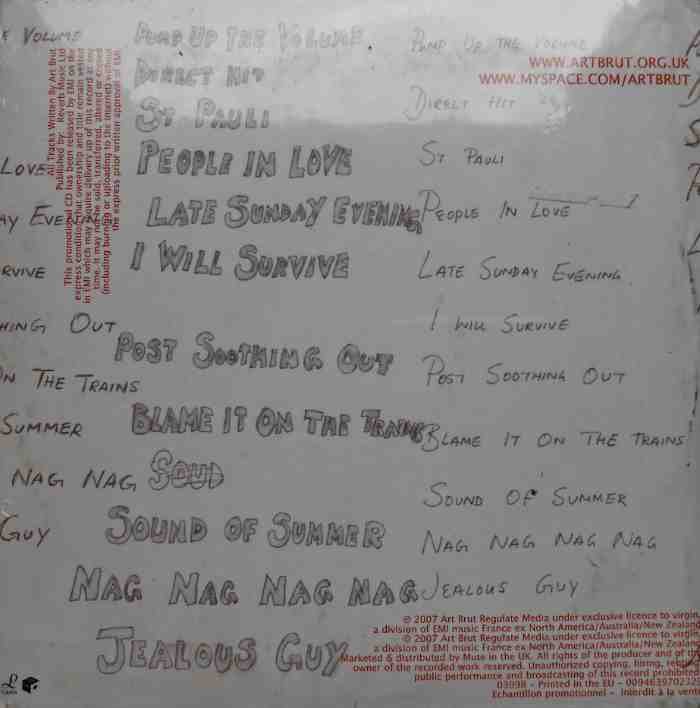 E VOLUME
LOVE
AY EVENING
RVIVE
HING OUT
ON THE TRAINS
SUMMER
NAG NAG
GUY
All Tracks Written By Art Brut
Published by: Reverb Music Ltd
This promotional CD has been released by EMI on the
express condition that ownership and title remain vested
in EMI which may require delivery up of this record at any
time. It may not be sold, transferred, altered or copied
(including burning or uploading to the internet) without
the express prior written approval of EMI
PUMP UP THE VOLUME
DIRECT HIT
ST PAULI
PEOPLE IN LOVE
LATE SUNDAY EVENING
I WILL SURVIVE
POST SOOTHING OUT
BLAME IT ON THE TRAINS
SOUD
SOUND OF SUMMER
NAG NAG NAG NAG
JEALOUS GUY
PUMP UP THE VOLUME
DIRECT HIT
ST PAULI
PEOPLE IN LOVE
LATE SUNDAY EVENING
I WILL SURVIVE
POST SOOTHING OUT
BLAME IT ON THE TRAINS
SOUND OF SUMMER
NAG NAG NAG NAG
JEALOUS GUY
WWW.ARTBRUT.ORG.UK
WWW.MYSPACE.COM/ARTBRUT
© 2007 Art Brut Regulate Media under exclusive licence to virgin,
a division of EMI music France ex North America/Australia/New Zealand
© 2007 Art Brut Regulate Media under exclusive licence to virgin,
a division of EMI music France ex North America/Australia/New Zealand
Marketed & distributed by Mute in the UK. All rights of the producer and of the
owner of the recorded work reserved. Unauthorized copying, hiring, re
public performance and broadcasting of this record prohibited
Printed in the EU - 009463970232
Echantillon promotionnel - Interdit à la vente